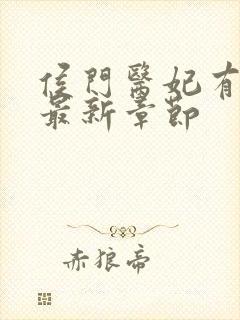 侯門醫妃有
最新章節
赤狼帝